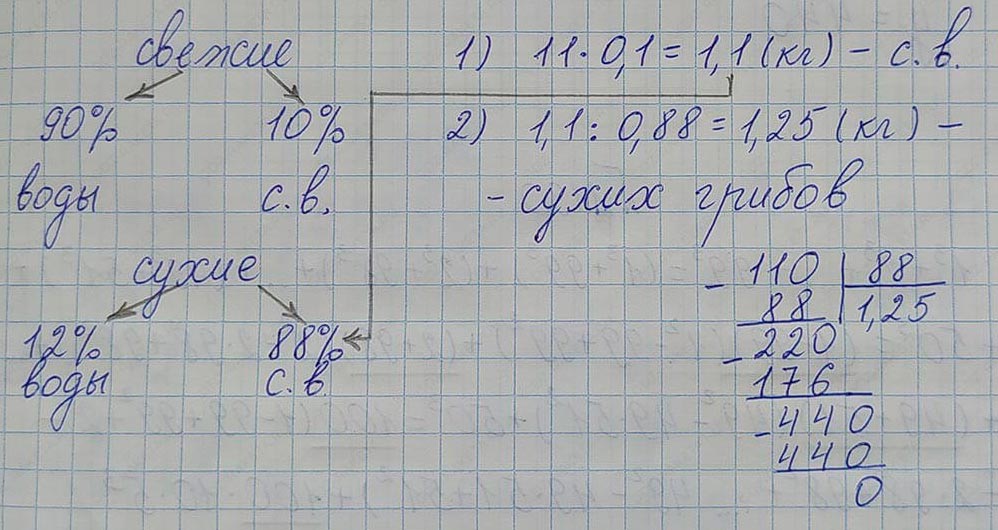 свежие
90% 10%
воды с.в.
сухие
12% 88%
воды с.в.
1) 11·0,1=1,1(кг) – с.в.
2) 1,1:0,88=1,25(кг) –
- сухих грибов
- 110 | 88
88 | 1,25
- 220
176
- 440
440
0